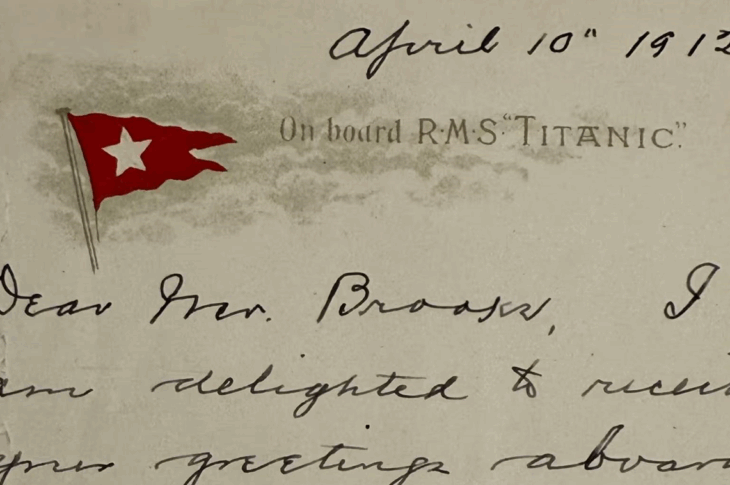 April 10" 1912
On board R·M·S "TITANIC".
Dear Mr. Brooks, I
am delighted to receiv
your greetings aboar